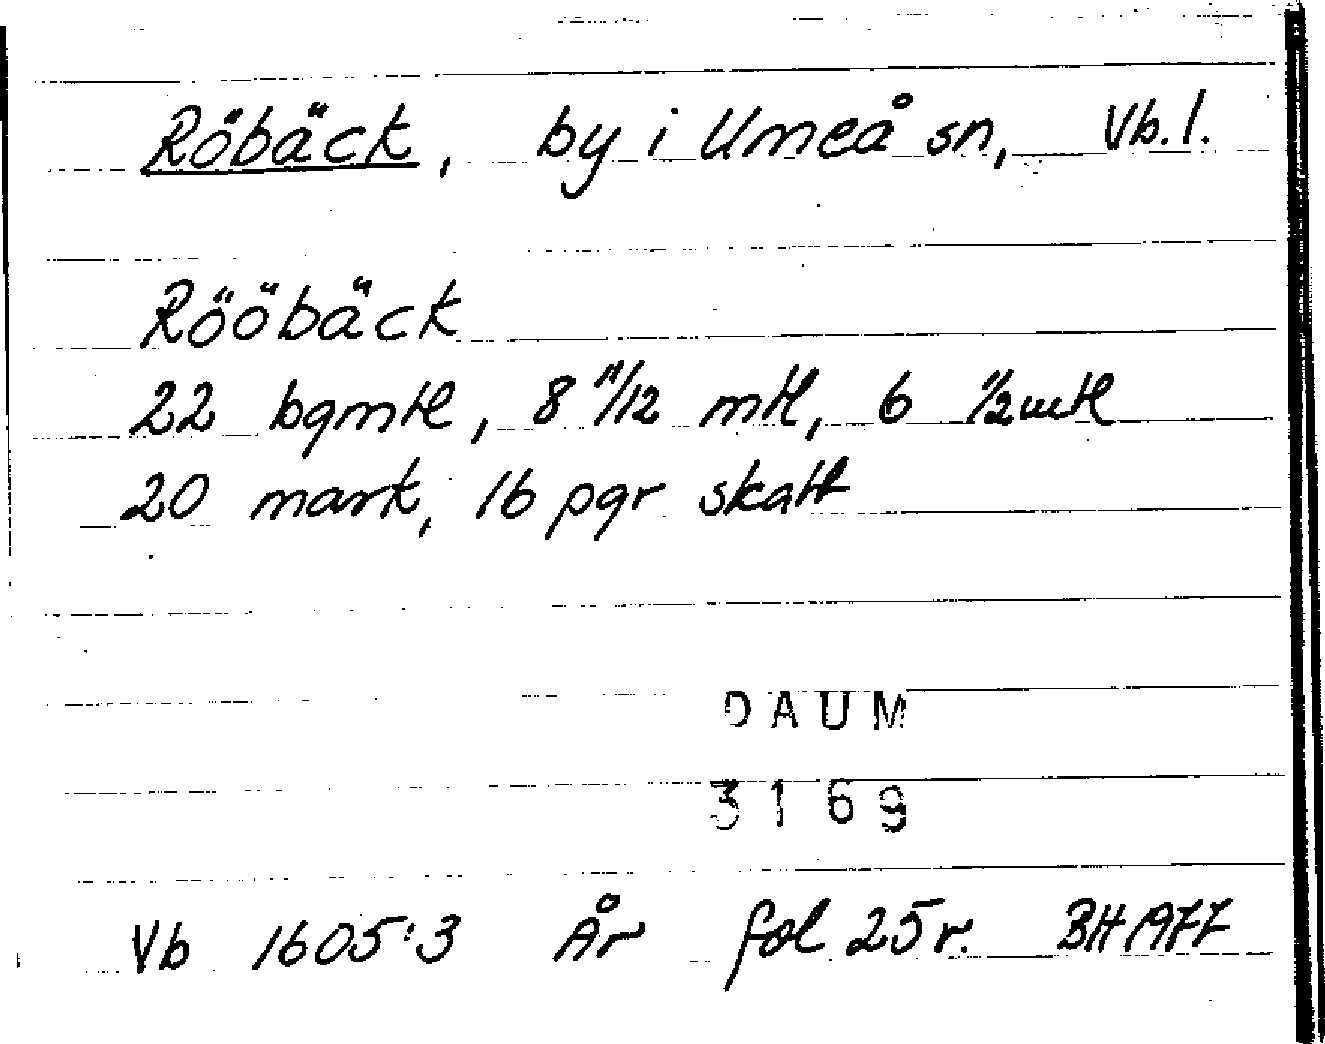 Röbäck, by i Umeå sn, Vb. l.
Rööbäck
22 bgmtl, 8 11/12 mtl, 6 1/2 mtl
20 mark, 16 pgr skatt
DAUM
3169
Vb 1605:3 År fol 25 r. BH 1977